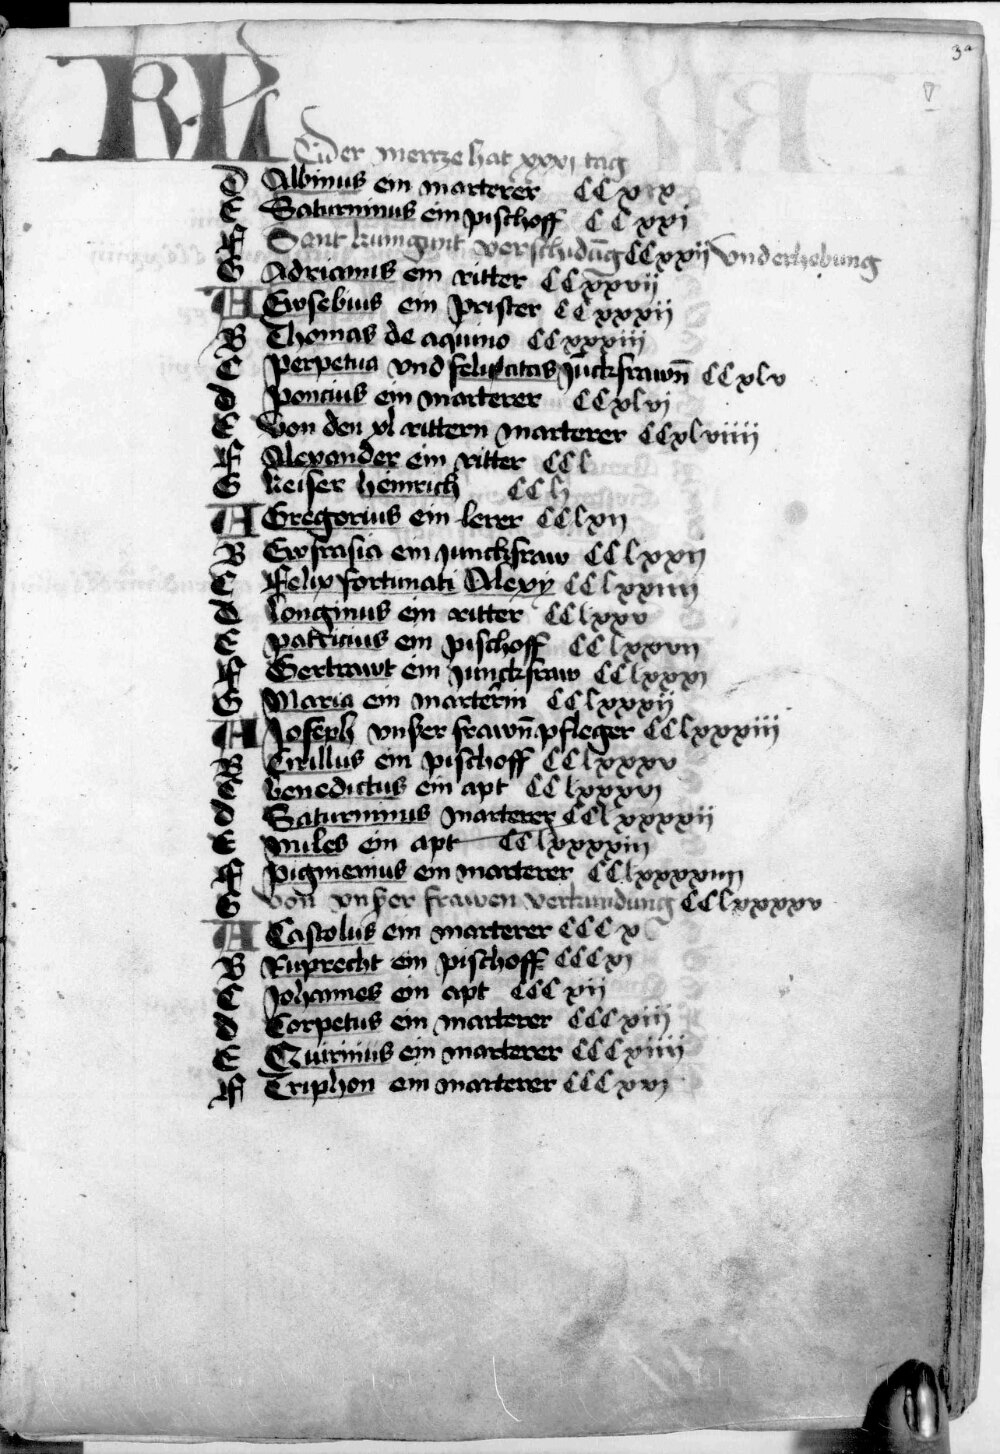 3a
V
KL
Der mercze hat xxxi tag
D Albinus ein marterer CCxix
E Saturninus ein pischoff CCxxi
F Sant kungunt verschidūg CCxxij vnd erhebung
G Adrianus ein ritter CCxxvij
A Ewsebius ein prister CCxxxij
B Thomas de aquino CCxxxiij
C Perpetua vnd felicitas Junckfrawn̄ CCxlv
D Poncius ein marterer CCxlvi
E Von den xl rittern marterer CCxlviiij
F Alexander ein ritter CCl
G Keiser heinrich CClj
A Gregorius ein lerer CClxij
B Ewfrasia ein Junckfraw CClxxij
C Felix fortunati Alexij CClxxiiij
D Longinus ein ritter CClxxv
E Patricius ein pischoff CClxxvij
F Gertrawt ein Junckfraw CClxxxi
G Maria ein marterin CClxxxij
A Joseph vnßer frawn̄ pfleger CClxxxiij
B Cirillus ein pischoff CClxxxv
C benedictus ein apt CClxxxvi
D Saturninus marterer CClxxxxij
E miles ein apt CClxxxxiij
F Pigmenius ein marterer CClxxxxiiij
G Von vnßer frawen verkundung CClxxxxv
A Castolus ein marterer CCCx
B Ruprecht ein pischoff CCCxi
C Johannes ein apt CCCxij
D Corpetus ein marterer CCCxiij
E Quirinus ein marterer CCCxiiij
F Triphon ein marterer CCCxvi